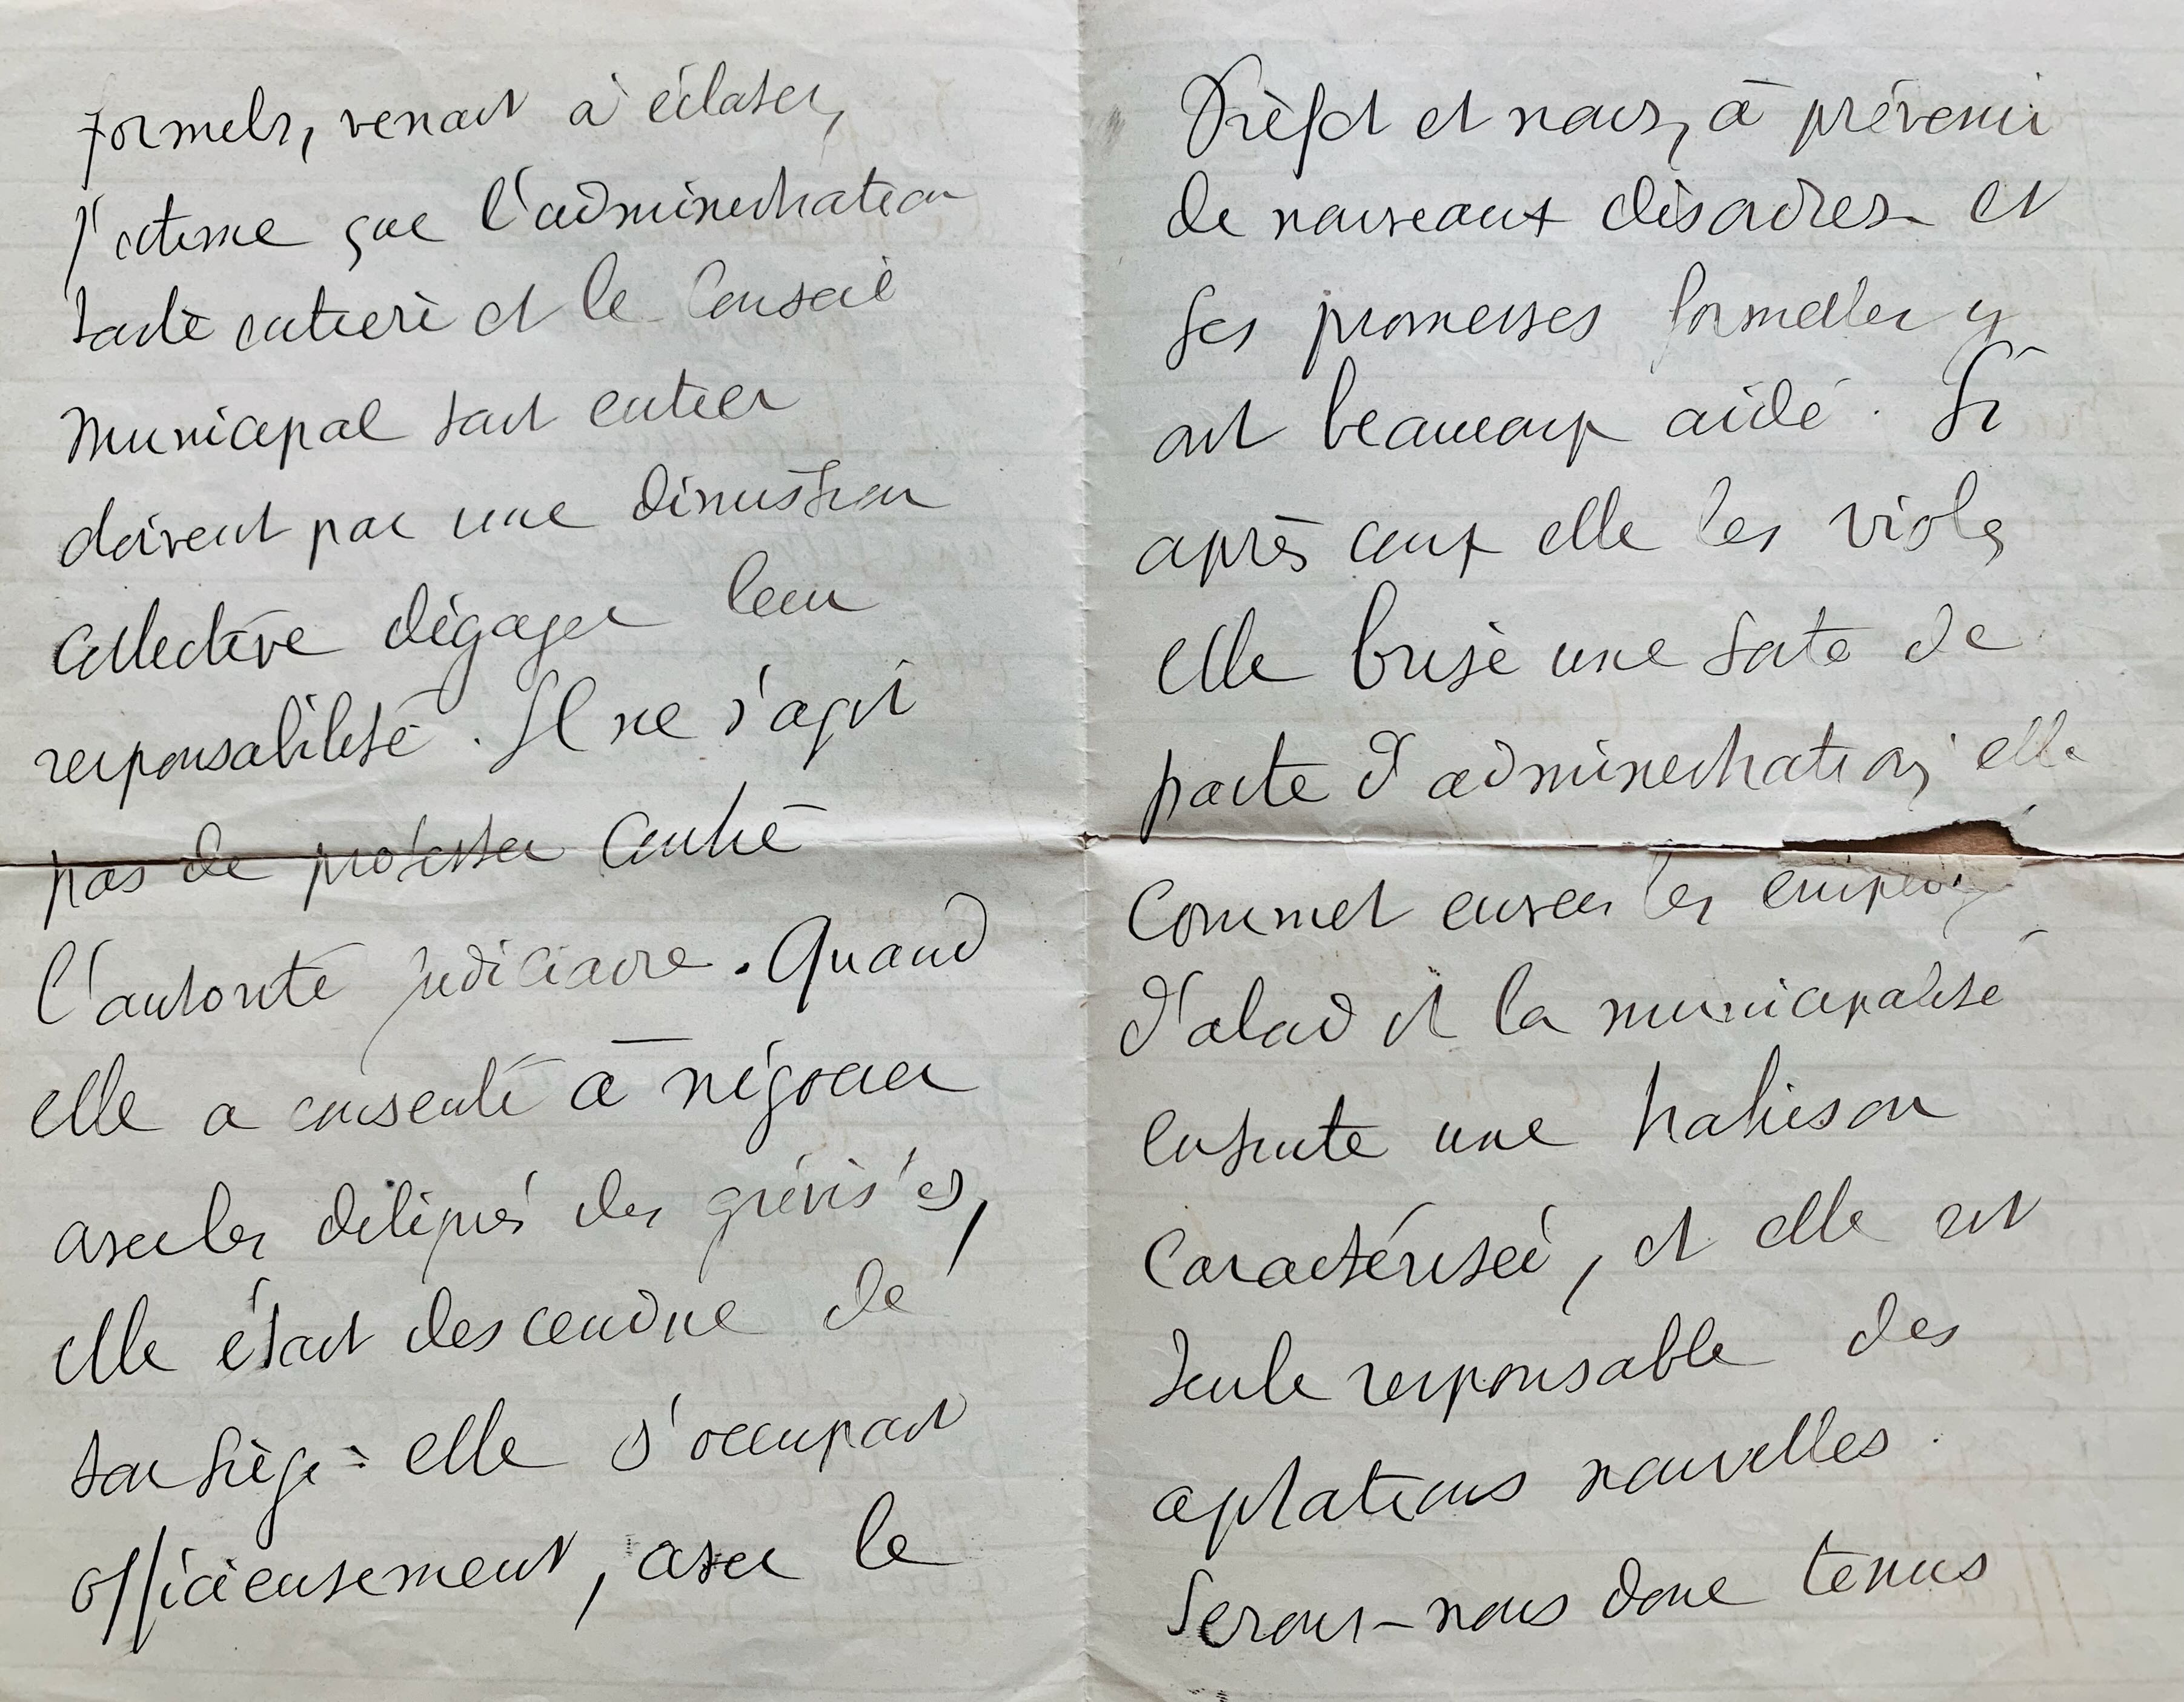 formels, venait à éclater,
j'estime que l'administration
toute entière et le Conseil
Municipal tout entier
doivent par une démission
collective dégager leur
responsabilité. Il ne s'agit
pas de protester contre
l'autorité judiciaire. Quand
elle a consenti à négocier
avec les délégués des grévistes,
elle était descendue de
son siège : elle s'occupait
officieusement, avec le
Préfet et nous, à prévenir
de nouveaux désordres et
ses promesses formelles y
ont beaucoup aidé. Si
après coup elle les viole,
elle brise une sorte de
pacte d'administration, elle
commet envers les
d'abord et la municipalité
ensuite une trahison
caractérisée, et elle est
seule responsable des
agitations nouvelles.
Serons-nous donc tenus